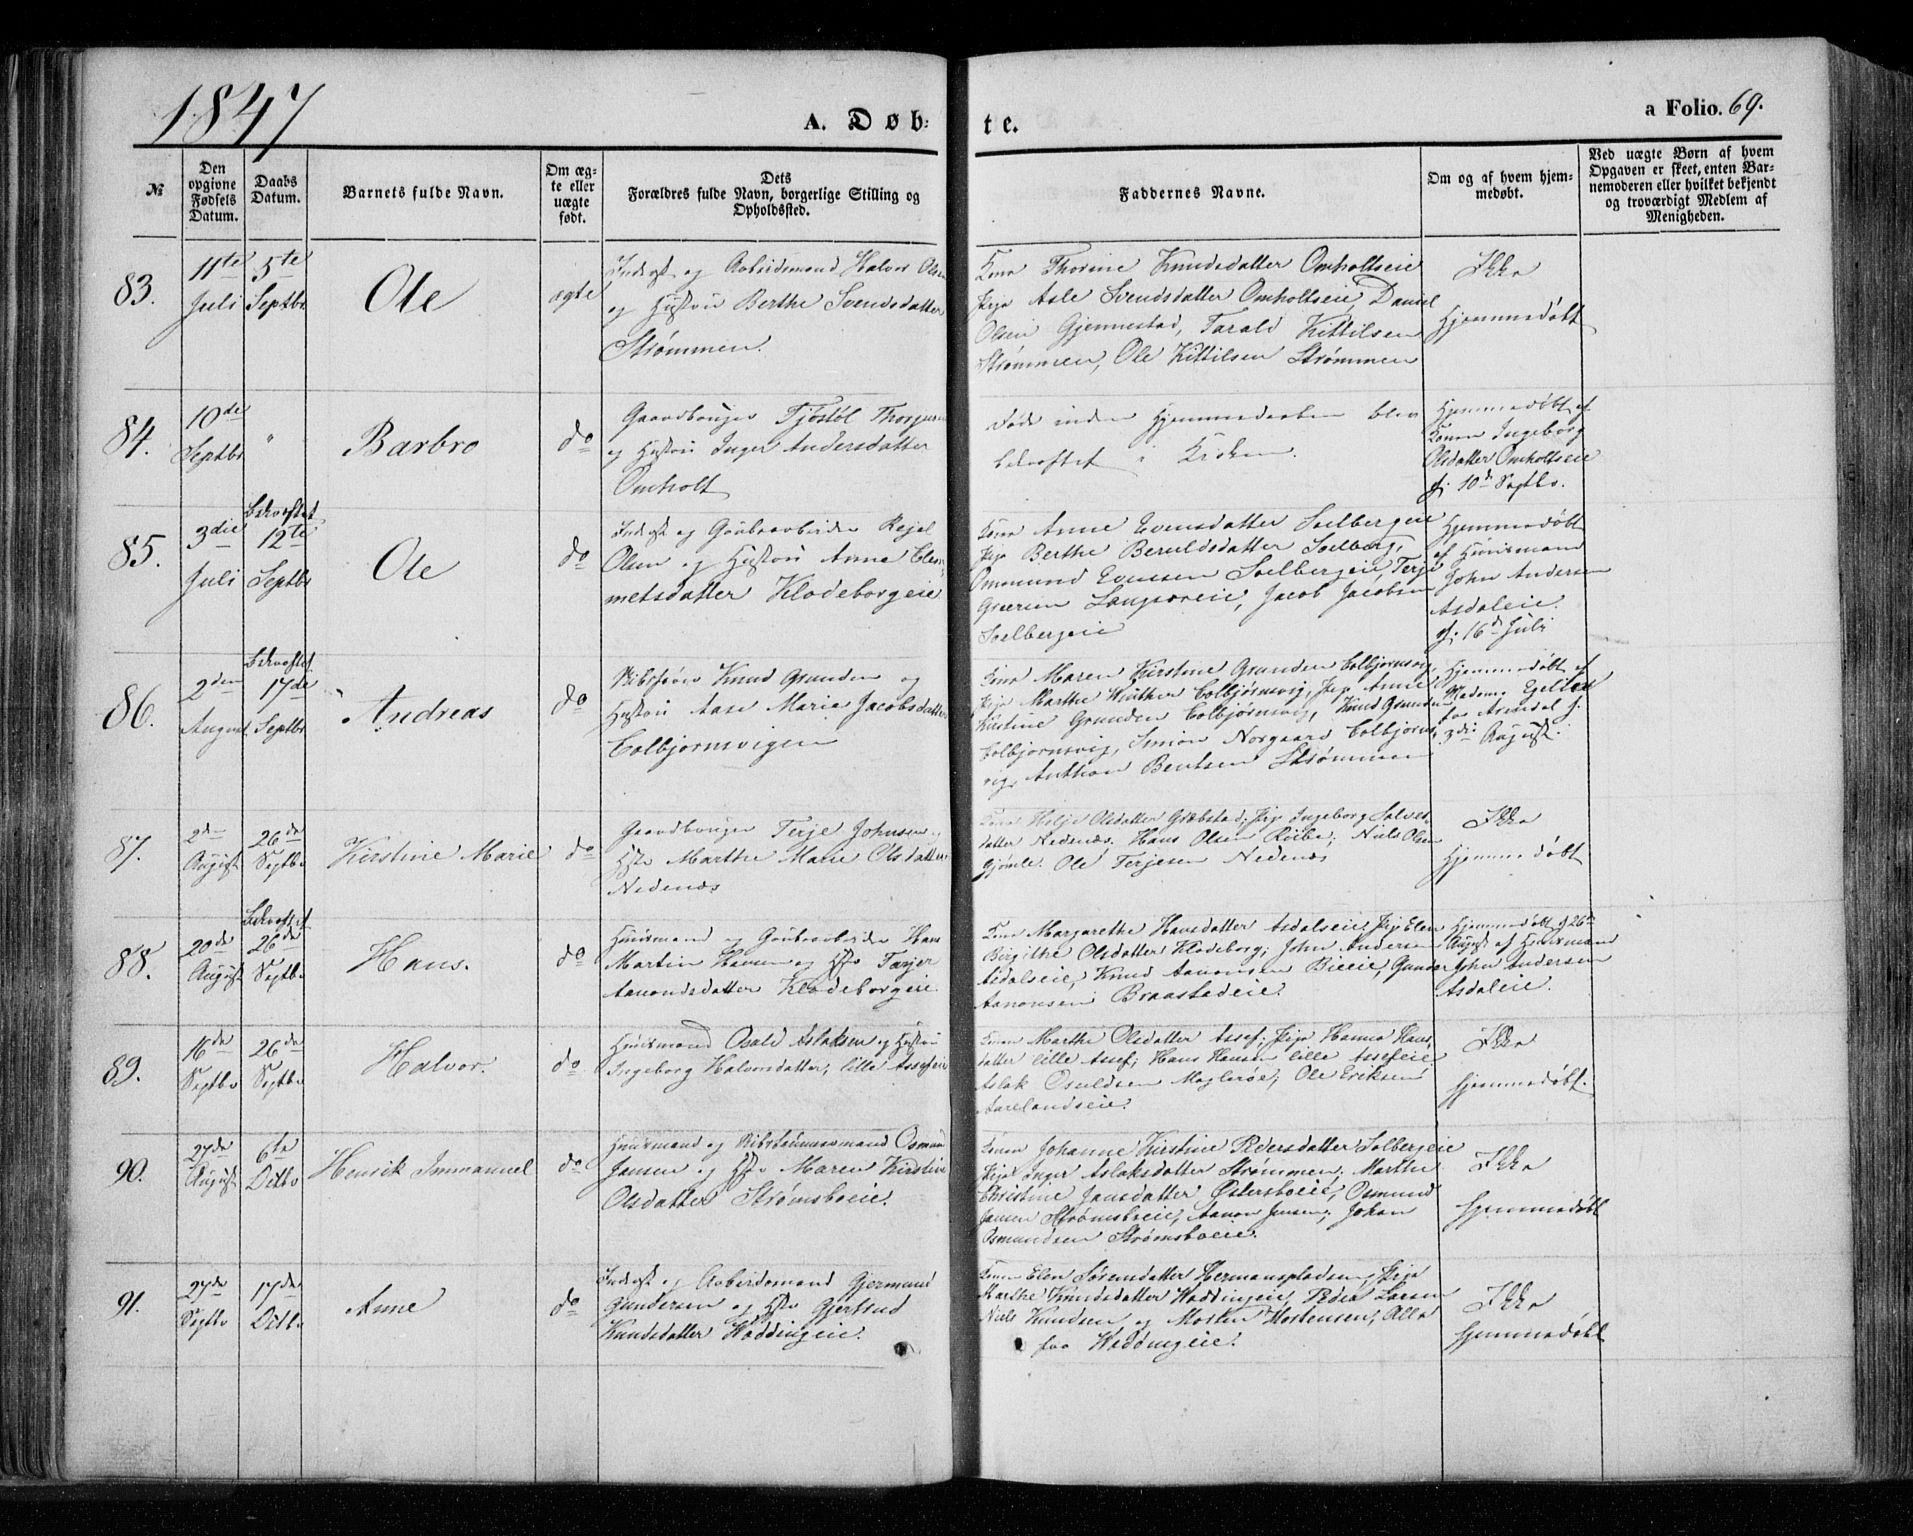 1847
A. Døb-
te.
a Folio. 69.
№
Den opgivne Fødsels Datum.
Daabs Datum.
Barnets fulde Navn.
Om ægte eller uægte født.
Dets Forældres fulde Navn, borgerlige Stilling og Opholdssted.
Faddernes Navne.
Om og af hvem hjemmedøbt.
Ved uægte Børn af hvem Opgaven er skeet, enten Barnemoderen eller hvilket bekjendt og troværdigt Medlem af Menigheden.
83.
11te Juli
5te Septbr
Ole
ægte
Inderst og Arbeidsmand Halvor Olsen
og Hustru Berthe Svendsdatter
Strømmen.
Kone Thorine Knudsdatter Omholtseie
Pige Asle Svendsdatter Omholtseie, Daniel
Olsen Gjennestad, Tarald Kittilsen
Strømmen, Ole Kittilsen Strømmen
Ikke
Hjemmedøbt
84.
10de Septbr
"
Barbro
do
Gaardbruger Tjøstøl
og Hustru Inger Andersdatter
Omholt
Døde inden Hjemmedaaben blev
bekræftet i Kirken.
Hjemmedøbt af
Konen Ingeborg
Olsdatter Omholtseie
d. 10de Septbr.
85.
3die Juli
Bekræftet
12te Septbr
Ole
do
Inderst og Grubearbeider
Olsen og Hustru Anne Clem-
metsdatter Klodeborgeie
Kone Anne Evensdatter Solbergeie
Pige Berthe Beruldsdatter Solberg,
Ommund Evensen Solbergeie, Terje
Langsæeie, Jacob Jacobsen
Solbergeie
Hjemmedøbt
af Huusmand
John Andersen
Asdaleie.
d. 16de Juli
86.
2den August
Bekræftet
17de Septbr
Andreas
do
Skibsfører Knud Grunden og
Hustru Aase Maria Jacobsdatter
Colbjornsvigen
Kone Maren Kirstine Grunden Colbjornsvig,
Pige Marthe Winther Colbjørnsvig, Pige Anne
Kirstine Grunden Colbjørnsvig, Knud Grunden
Colbjornsvig, Simon Norgaard Colbjorns-
vig, Anthon Bentsen Strømmen
Hjemmedøbt af
Madame
fra Arendal d.
3die August.
87.
2den August
26de Septbr
Kirstine Marie
do
Gaardbruger Terje Johnsen
Hstr Marthe Marie Olsdatter
Nedenæs
Kone Helje Olsdatter Græbstad, Pige Ingeborg Salves-
datter Nedenæs, Hans Olsen Riibe, Niels Olsen
Gjømle. Ole Terjesen Nedenæs
Ikke
Hjemmedøbt
88.
20de August
Bekræftet
26de Septbr
Hans.
do
Huusmand og Grubearbeider Hans
Martin Hansen og Hstr Tarjer
Aanondsdatter Klodeborgeie
Kone Margarethe Hansdatter Asdaleie, Pige Elen
Birgithe Olsdatter Klodeborg, John Andersen
Asdaleie, Knud Aanonsen Bieeie, Gunder
Aanonsen Braastadeie.
Hjemmedøbt d. 26de
August af Huusmand
John Andersen
Asdaleie.
89.
16de Septbr
26de Septbr
Halvor.
do
Huusmand Osuld Aslaksen og Hustru
Ingeborg Halvorsdatter, lille Assefeie
Kone Marthe Olsdatter Assef, Pige Hanna Hans-
datter lille Assef, Hans Hansen lille Assefeie
Aslak Osuldsen Maglerøe, Ole Eriksen
Aarelandseie.
Ikke
hjemmedøbt.
90.
27de August
6te Ditto
Henrik Immanuel
do
Huusmand og Skibstømmermand Osmund
Jansen og Hstr Maren Kirstine
Olsdatter Strømsboeie.
Konen Johanne Kirstine Pedersdatter Solbergeie
Pige Inger Aslaksdatter Strømmen, Marthe
Christine Jansdatter Østersboeie, Osmund
Jansen Strømsboeie, Aanon Jensen, Johan
Osmundsen Strømsboeie.
Ikke
hjemmedøbt
91.
27de Septbr
17de Ditto
Anne
do
Inderst og Arbeidsmand Gjermund
Gundersen og Hstr Gjertrud
Knudsdatter Høddingeie.
Konen Elen Sørensdatter Hermansplads, Pige
Marthe Knudsdatter Høddingeie, Peder Larsen
Niels Knudsen og Morten Mortensen, Alle
fra Høddingeie.
Ikke
hjemmedøbt